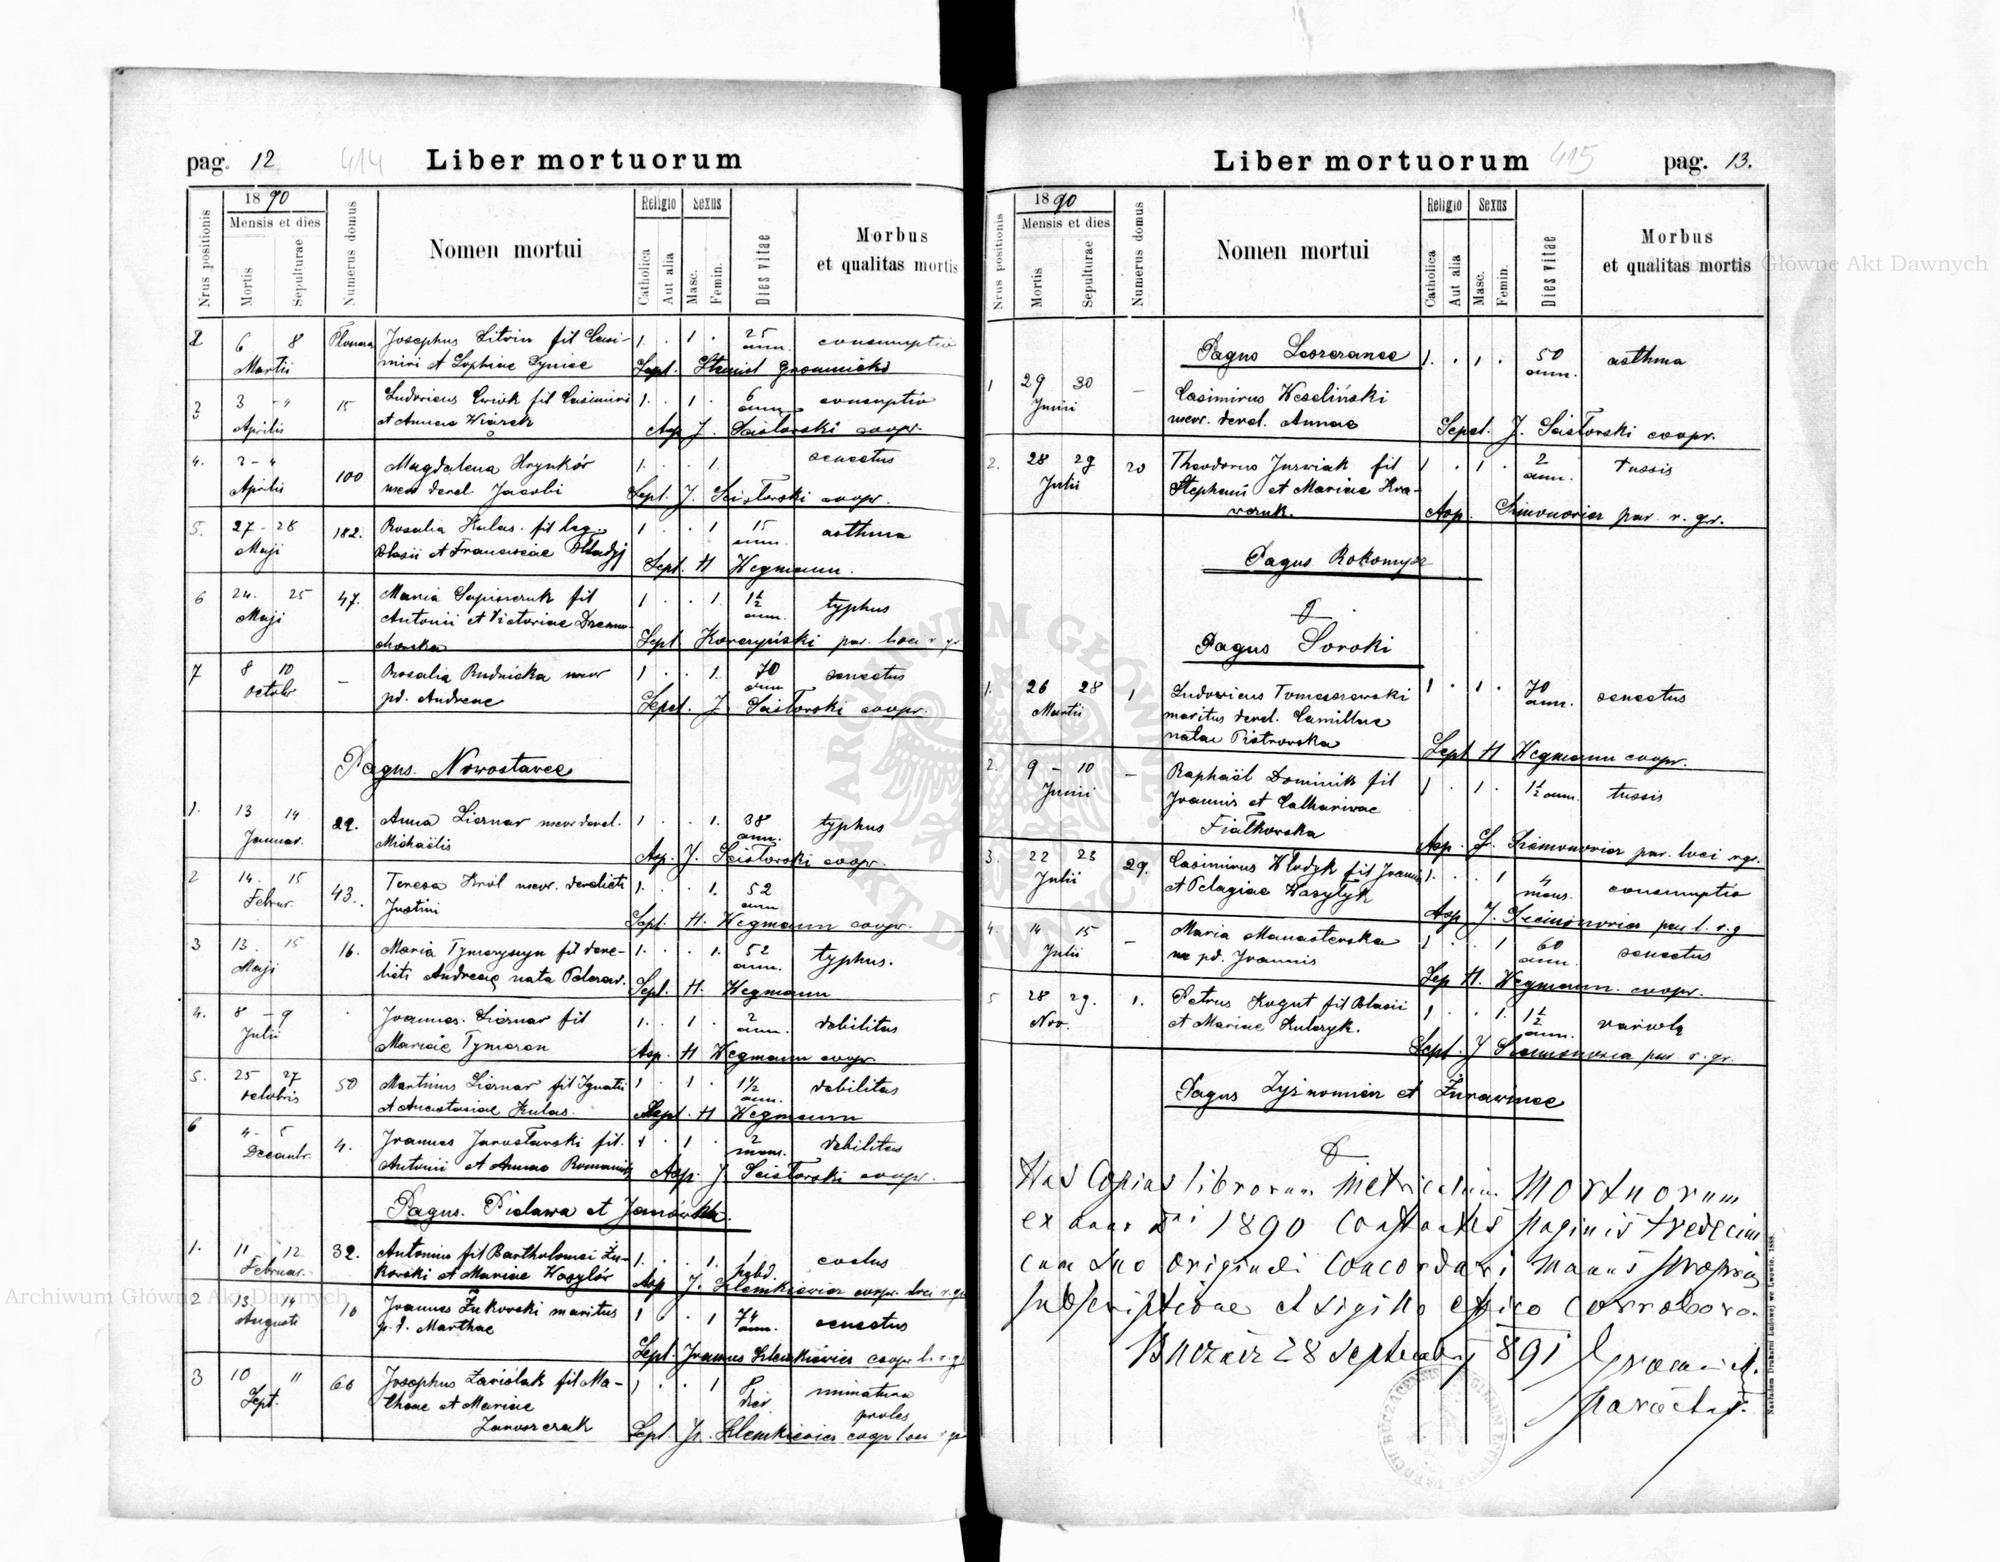 pag. 12
414
Liber mortuorum
Nrus positionis
1890
Mensis et dies
Mortis
Sepulturae
Numerus domus
Nomen mortui
Religio
Catholica
Aut alia
Sexus
Masc.
Femin.
Dies vitae
Morbus
et qualitas mortis
2 6 8 Josephus Litwin fil Casi- 1 . 1 . 25 consumptio
Martii miri et Sophiae ann.
Sept.
3 3 - 4 15 Ludovicus fil Casimiri 1 . 1 . 6 consuptio
Aprilis et Annae ann.
Asp J. Scisłowski coopr.
4. 2 - 4 100 Magdalena Hrynków 1 . . 1. senectus
Aprilis uxor derel Jacobi
Sept. J. Scisłowski coopr.
5. 27 - 28 182. Rosalia Kulas. fil leg. 1 . . 1 15 asthma
Maji Blasii et Franciscae ann.
Sept. H Wegmann.
6 24. 25 47. Maria fil 1 . . 1. 1½ typhus
Maji Antonii et Victoriae ann.
Sept par. loci r gr
7 8 10 — Rosalia Rudnicka uxor 1 . . 1. 70 senectus
Octobr pd. Andreae ann
Sept. J Scisłowski coopr.
Pagus. Nowostawce
1. 13 14 22. Anna uxor derel. 1 . . 1. 38 typhus
Januar. Michaëlis ann.
Asp. J. Scisłowski coopr.
2 14. 15 43. Teresa Król uxor. derelicti 1 . . 1. 52
Februar. Justini ann
Sept. H. Wegmann coopr.
3 13. 15 16. Maria fil dere- 1 . . 1. 52 typhus.
Maji licti Andreae nata ann.
Sept. H. Wegmann
4. 8 - 9 Joannes. fil 1 . 1 . 2 debilitas
Julii Mariae Tymozen ann.
Asp. H Wegmann coopr
5. 25 27 50 Martinus fil Ignatii 1 . 1 . 1½ debilitas
Octobris et Anastasiae Kulas. ann.
Sept. H Wegmann
6 4 - 5 4. Joannes Jarosławski fil. 1 . 1 . 2 debilitas
Decembr. Antonii et Annae mens.
Asp. J. Scisłowski coopr.
Pagus. Pielawa et Janówka.
1. 11 12 32. Antonius fil Bartholomei Żu- 1 . . 1.
Februar. kowski et Mariae Wasylów
Asp J. coopr. loci r. gr
2 13. 14 10 Joannes Żukowski maritus 1 . 1 74 senectus
Augusti p. d. Marthae ann.
Sept. Joannes coopr l. r. g
3 10 11 60 Josephus fil Ma- 1 . . 1 8 immatura
Sept. thae et Mariae dier. proles
Sept. J. coopr loci r gr
Liber mortuorum
415
pag. 13.
Nrus positionis
1890
Mensis et dies
Mortis
Sepulturae
Numerus domus
Nomen mortui
Religio
Catholica
Aut alia
Sexus
Masc.
Femin.
Dies vitae
Morbus
et qualitas mortis
Pagus Leszczance
1 29 30 — Casimirus Weseliński 1 . 1 . 50 asthma
Junii uxor. derel. Annae ann.
Sepul. J. Scisłowski coopr.
2. 28 29 20 Theodorus Jurwiak fil 1 . 1 . 2 tussis
Julii Stephani et Mariae Kra- ann.
wczuk.
Asp. par. r. gr.
Pagus Rokomysz
Pagus Soroki
1. 26 28 1 Ludovicus Tomaszewski 1 . 1 . 70 senectus
Martii maritus derel. Camillae ann.
natae Piotrowska
Sept H Wegmann coopr.
2. 9 - 10 — Raphaël Dominik fil 1 . 1 . 1½ ann. tussis
Junii Joannis et Catharinae
Fiałkowska
Asp. par. loci r gr.
3. 22 23 29. Casimirus Włodyk fil Joannis 1 . . 1 4 consumptio
Julii et Pelagiae Wasylyk mens.
Asp J. par l. r. g
4. 14 15 — Maria Manasterska 1 . . 1 60 senectus
Julii ux pd. Joannis ann.
Sep H. Wegmann. coopr.
5 28 29. 1. Petrus Kogut fil Blasii 1 . . 1. 1½ variola
Nov. et Mariae Kulczyk. ann.
Sept. J par. r. gr.
Pagus Żyznomierz et Żurawince
Has Copias librorum Metricalium Mortuorum
ex anno Dni 1890 Constantes paginis tredecim
cum suo originali Concordari manus propria
subscriptione et sigillo corroboro.
Buczacz 28 Septembris 1891
parochus.
Nakładem Drukarni Ludowej we Lwowie. 1888.
Archiwum Główne Akt Dawnych
Archiwum Główne Akt Dawnych
ARCHIWUM GŁÓWNE AKT DAWNYCH